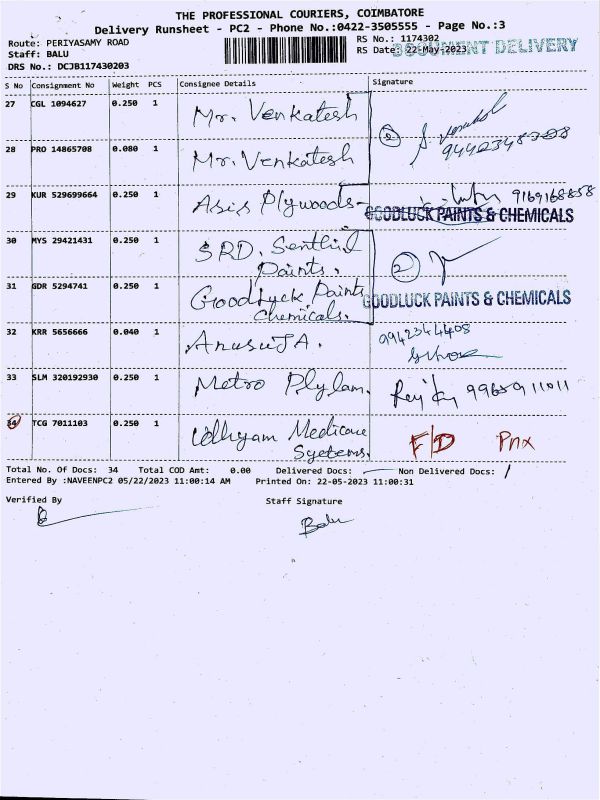 THE PROFESSIONAL COURIERS, COIMBATORE
Delivery Runsheet - PC2 - Phone No.:0422-3505555 - Page No.:3
Route: PERIYASAMY ROAD
RS No.: 1174302
Staff: BALU
RS Date: 22-May-2023
DOCUMENT DELIVERY
DRS No.: DCJB117430203
S No Consignment No Weight PCS Consignee Details Signature
27 CGL 1094627 0.250 1 Mr. Venkatesh
28 PRO 14865708 0.080 1 Mr. Venkatesh
29 KUR 529699664 0.250 1 Asis Plywoods- 9169168858
GOODLUCK PAINTS & CHEMICALS
30 MYS 29421431 0.250 1 SRD. Senthil
Paints. 2
31 GDR 5294741 0.250 1 Goodluck Paints
Chemicals. GOODLUCK PAINTS & CHEMICALS
32 KRR 5656666 0.040 1 AnusuJA. 9942344408
33 SLM 320192930 0.250 1 Metro Plylam.
34 TCG 7011103 0.250 1 Udhyam Medicare
Systems. F/D
Total No. Of Docs: 34 Total COD Amt: 0.00 Delivered Docs: Non Delivered Docs: /
Entered By :NAVEENPC2 05/22/2023 11:00:14 AM Printed On: 22-05-2023 11:00:31
Verified By Staff Signature
Balu